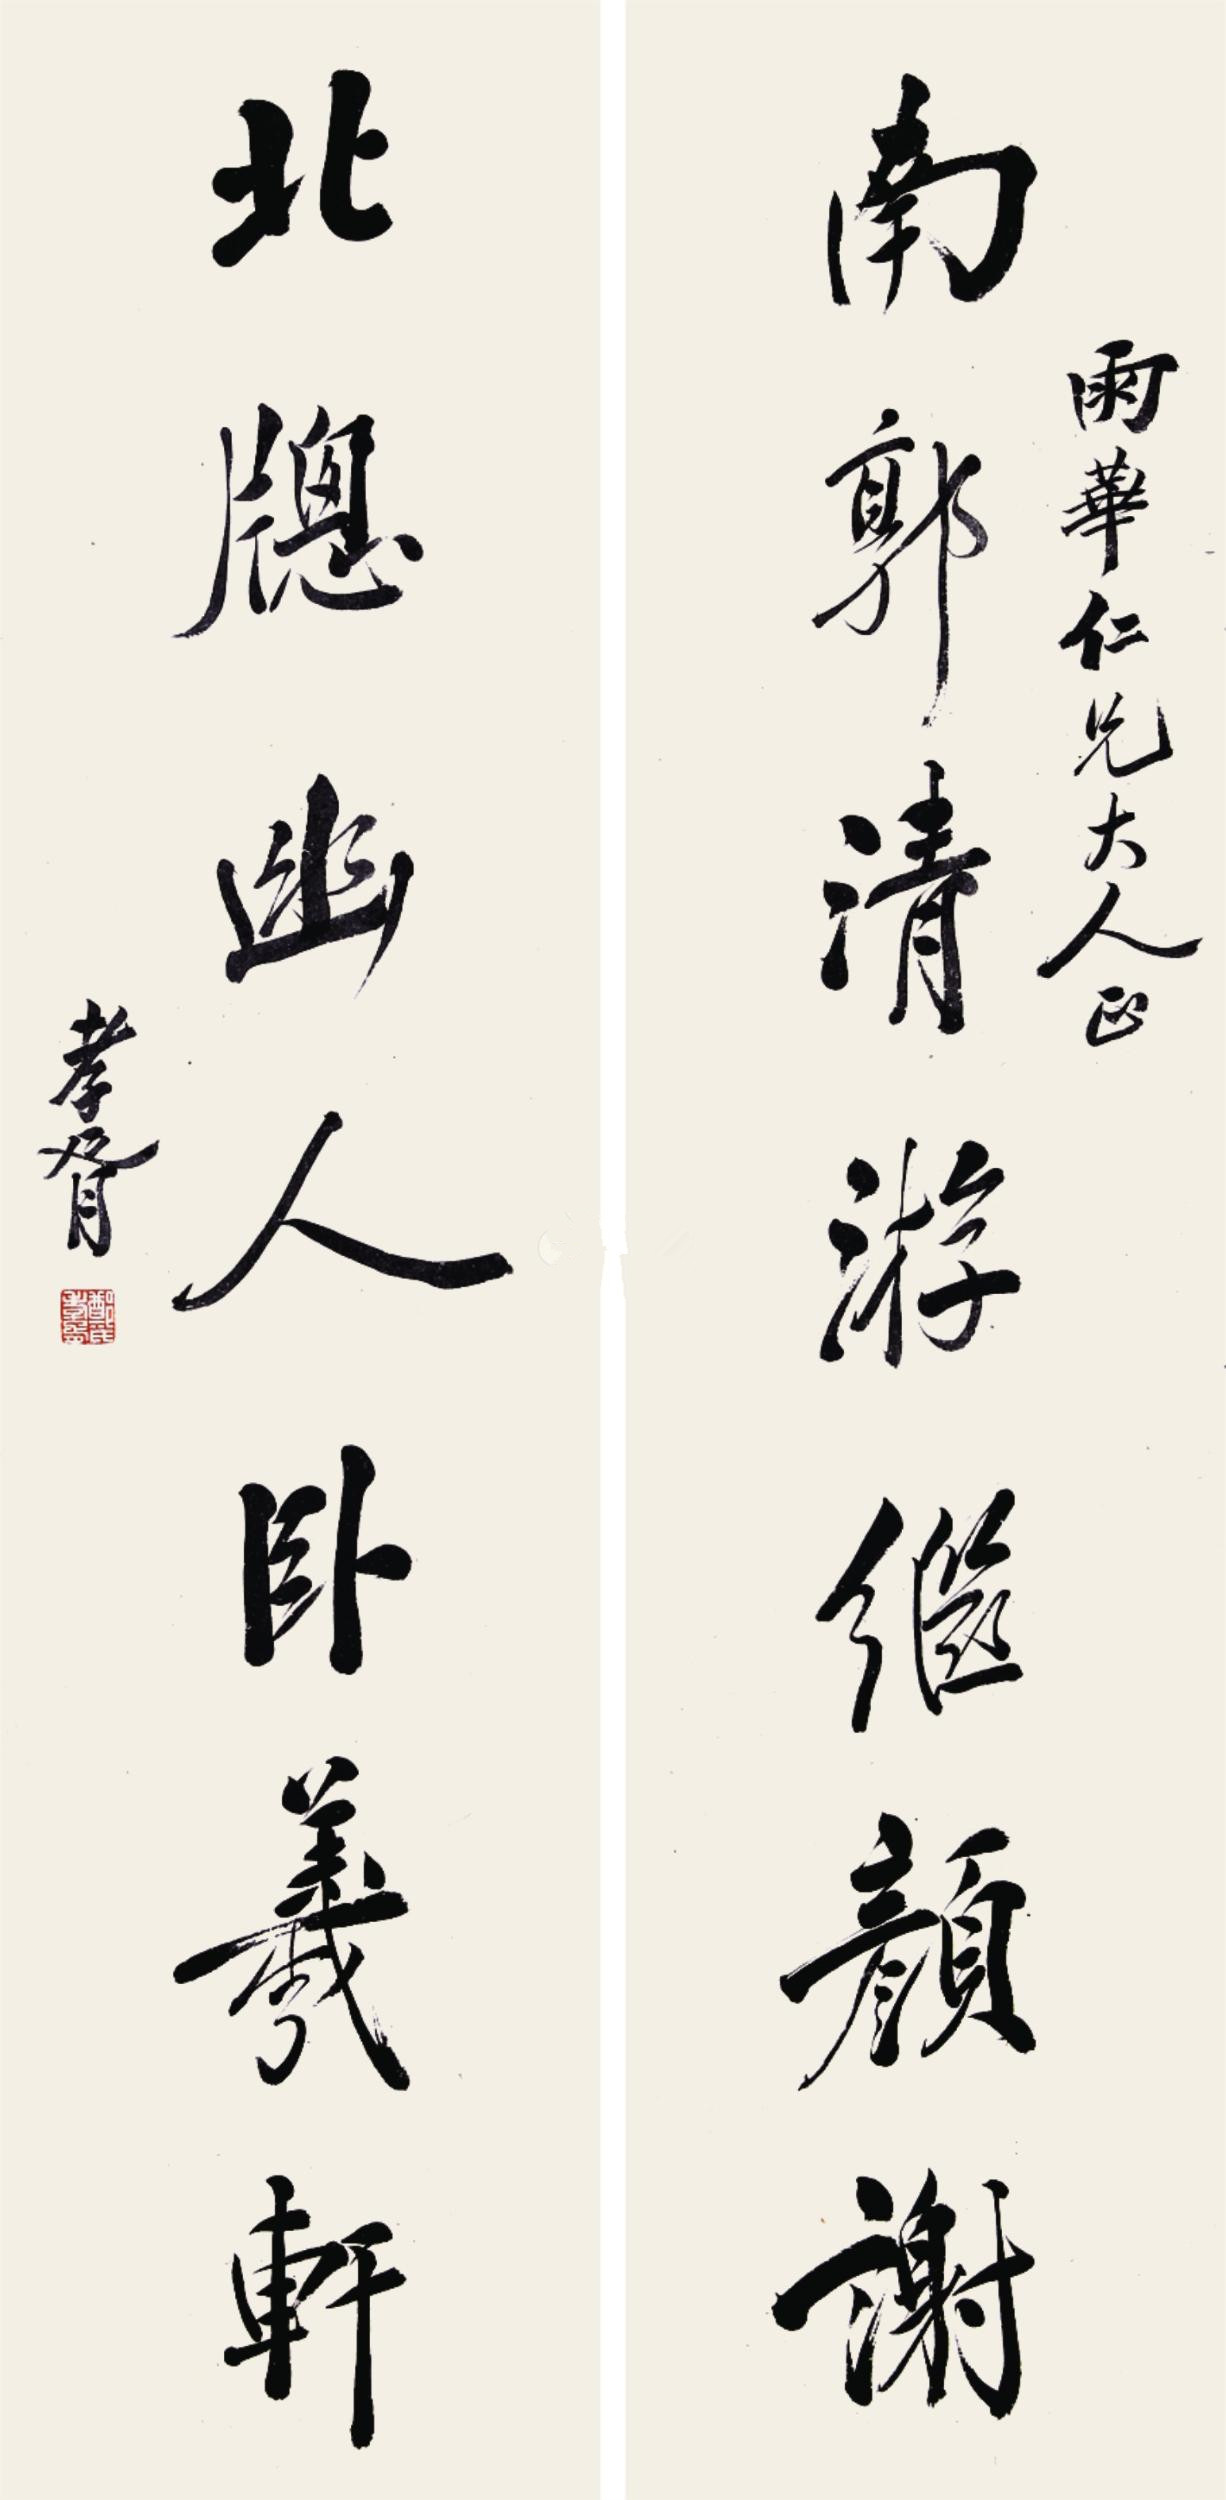 雨華仁兄大人正
南郭清游繼顏謝
北牕幽人卧羲軒
孝胥
鄭氏孝胥